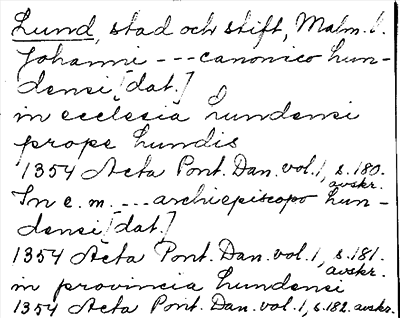 Lund, stad och stift, Malm. l.
Johanni --- canonico Lun-
densi [dat.]
in ecclesia Lundensi
prope Lundis
1354 Acta Pont. Dan. vol. 1, s. 180.
avskr.
In e. m. --- archiepiscopo Lun-
densi [dat.]
1354 Acta Pont. Dan. vol. 1, s. 181.
avskr.
in provincia Lundensi
1354 Acta Pont. Dan. vol. 1, s. 182. avskr.